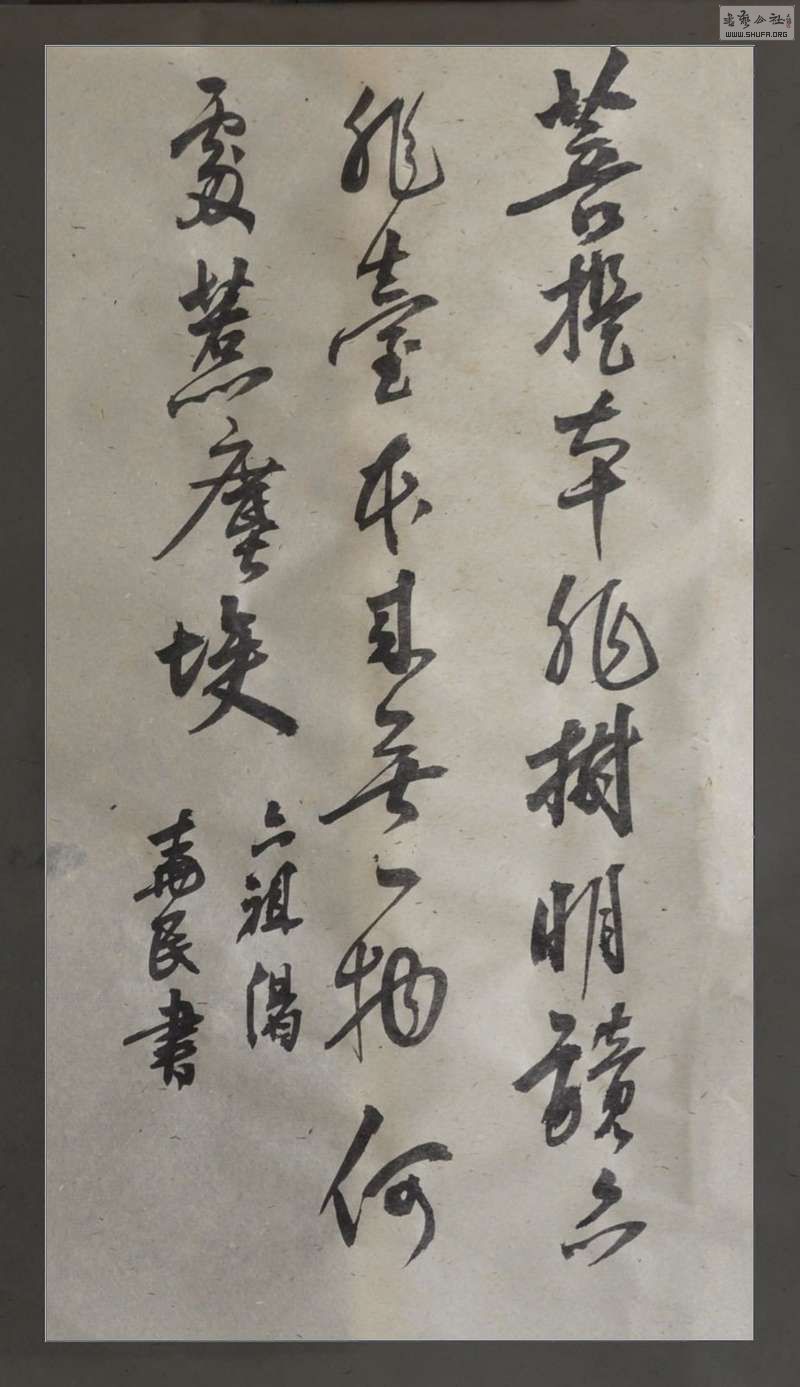 菩提本非樹明鏡亦
非臺本来無一物何
處惹塵埃
六祖偈
民書
書藝公社
WWW.SHUFA.ORG